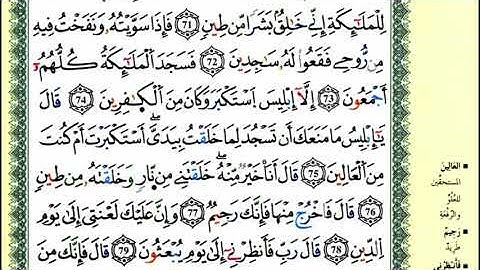 لِلْمَلَـٰٓئِكَةِ إِنِّى خَـٰلِقٌۢ بَشَرًا مِّن طِينٍ ﴿71﴾ فَإِذَا سَوَّيْتُهُۥ وَنَفَخْتُ فِيهِ
مِن رُّوحِى فَقَعُوا۟ لَهُۥ سَـٰجِدِينَ ﴿72﴾ فَسَجَدَ ٱلْمَلَـٰٓئِكَةُ كُلُّهُمْ
أَجْمَعُونَ ﴿73﴾ إِلَّآ إِبْلِيسَ ٱسْتَكْبَرَ وَكَانَ مِنَ ٱلْكَـٰفِرِينَ ﴿74﴾ قَالَ
يَـٰٓإِبْلِيسُ مَا مَنَعَكَ أَن تَسْجُدَ لِمَا خَلَقْتُ بِيَدَىَّ ۖ أَسْتَكْبَرْتَ أَمْ كُنتَ
مِنَ ٱلْعَالِينَ ﴿75﴾ قَالَ أَنَا۠ خَيْرٌ مِّنْهُ ۖ خَلَقْتَنِى مِن نَّارٍ وَخَلَقْتَهُۥ مِن طِينٍ
﴿76﴾ قَالَ فَٱخْرُجْ مِنْهَا فَإِنَّكَ رَجِيمٌ ﴿77﴾ وَإِنَّ عَلَيْكَ لَعْنَتِىٓ إِلَىٰ يَوْمِ
ٱلدِّينِ ﴿78﴾ قَالَ رَبِّ فَأَنظِرْنِىٓ إِلَىٰ يَوْمِ يُبْعَثُونَ ﴿79﴾ قَالَ فَإِنَّكَ مِنَ
العَالِينَ
المستحقين
للعُلُوِّ
والرِّفعةِ
رَجِيمٌ
طريدٌ
فَأَنظِرْنِي